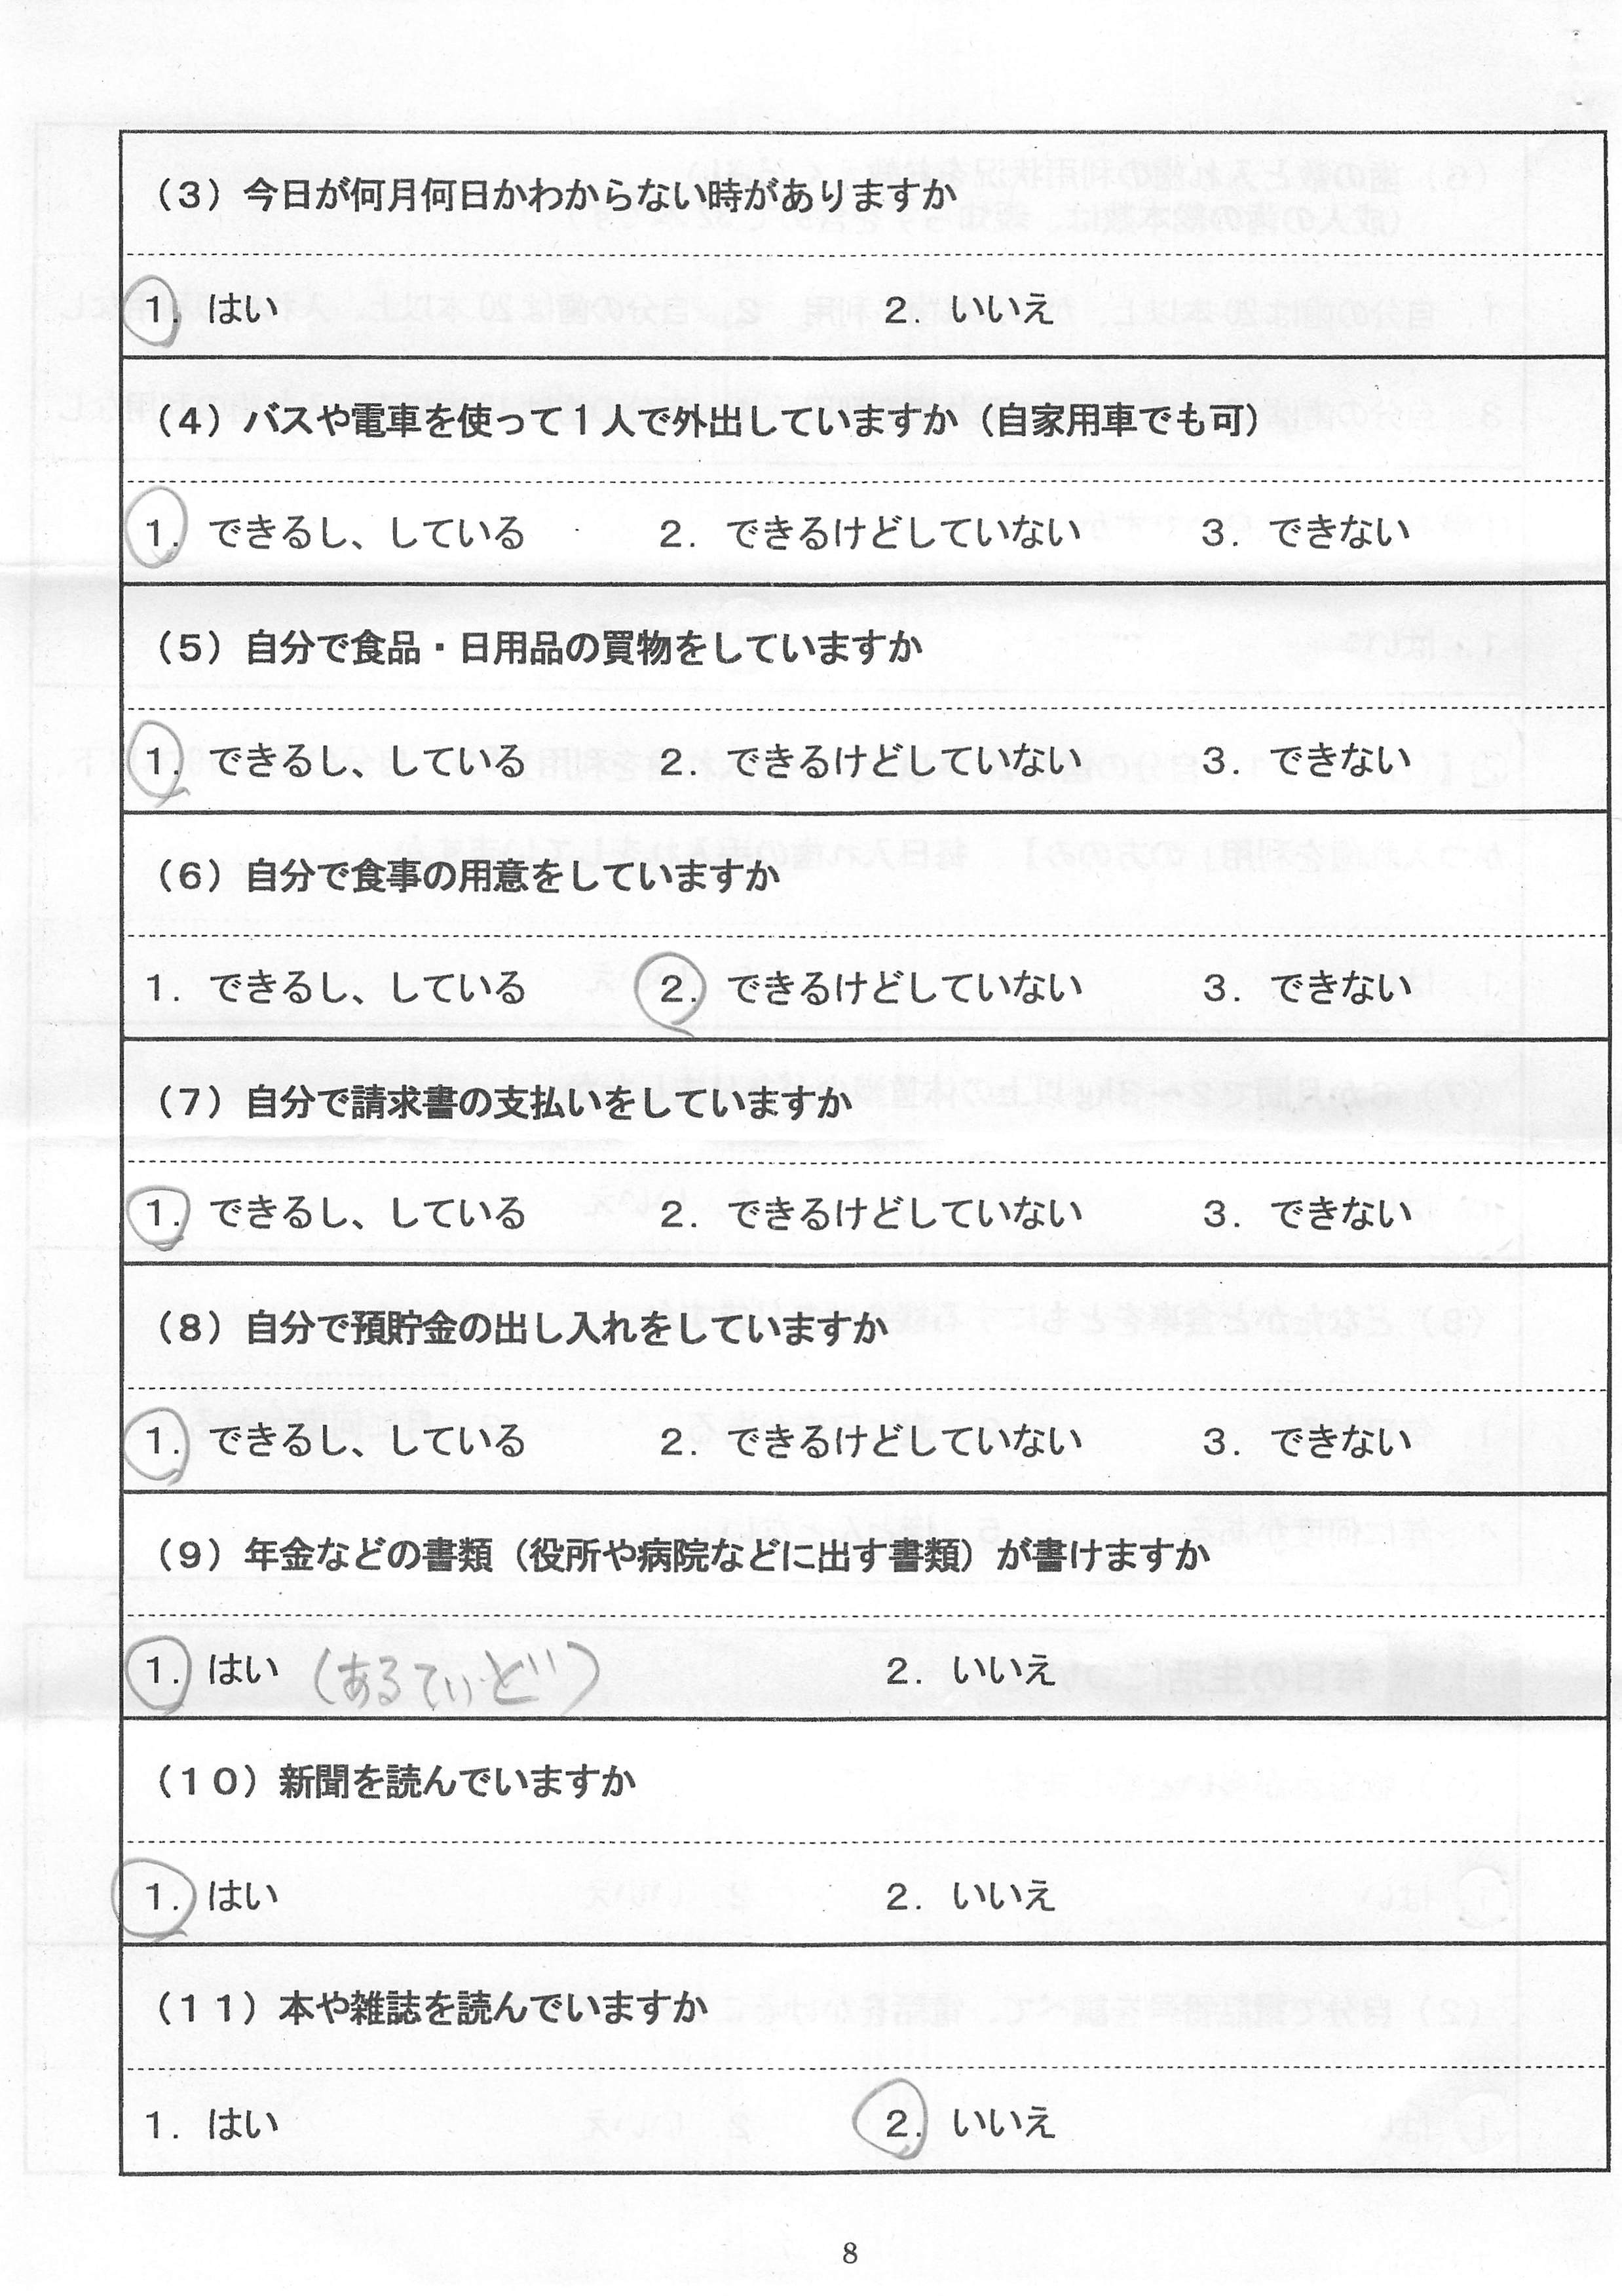 （3）今日が何月何日かわからない時がありますか
1．はい　2．いいえ
（4）バスや電車を使って1人で外出していますか（自家用車でも可）
1．できるし、している　2．できるけどしていない　3．できない
（5）自分で食品・日用品の買物をしていますか
1．できるし、している　2．できるけどしていない　3．できない
（6）自分で食事の用意をしていますか
1．できるし、している　2．できるけどしていない　3．できない
（7）自分で請求書の支払いをしていますか
1．できるし、している　2．できるけどしていない　3．できない
（8）自分で預貯金の出し入れをしていますか
1．できるし、している　2．できるけどしていない　3．できない
（9）年金などの書類（役所や病院などに出す書類）が書けますか
1．はい（あるていど）　2．いいえ
（10）新聞を読んでいますか
1．はい　2．いいえ
（11）本や雑誌を読んでいますか
1．はい　2．いいえ
8